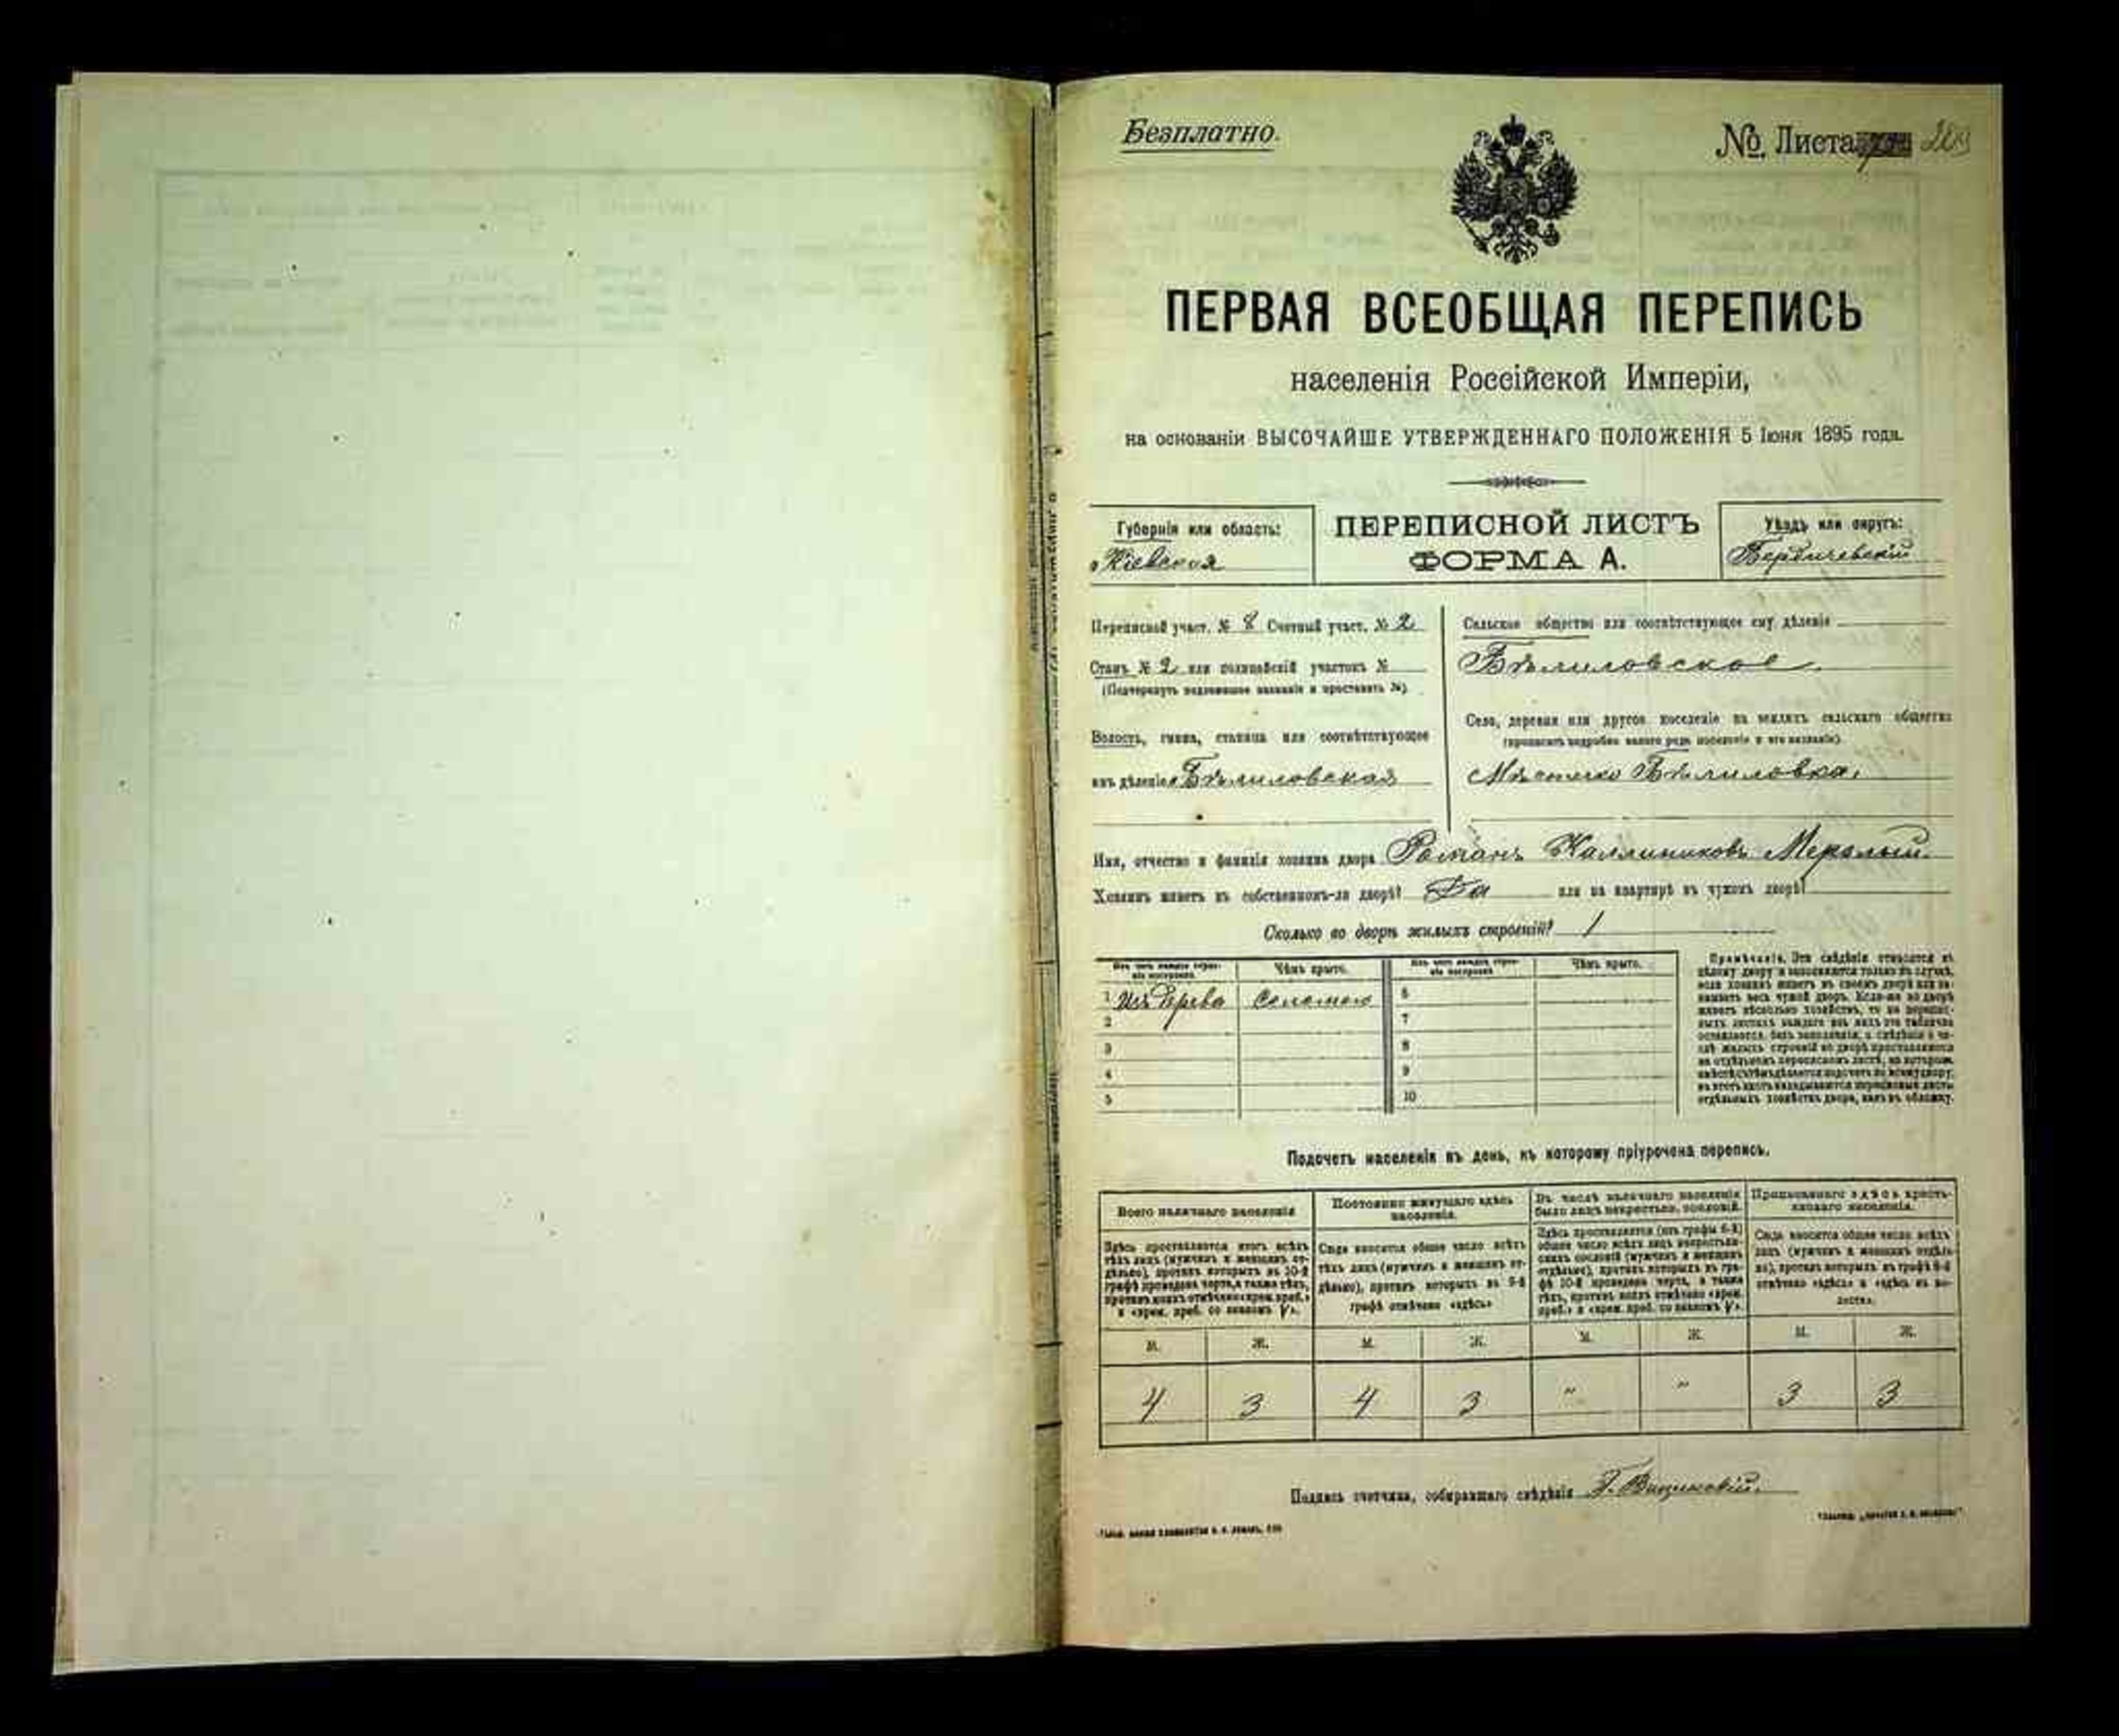 Безплатно.
№ Листа
ПЕРВАЯ ВСЕОБЩАЯ ПЕРЕПИСЬ
населенія Россійской Имперіи,
на основаніи ВЫСОЧАЙШЕ УТВЕРЖДЕННАГО ПОЛОЖЕНІЯ 5 Іюня 1895 года.
Губернія или область:
Кіевская
ПЕРЕПИСНОЙ ЛИСТЪ
ФОРМА А.
Уѣздъ или округъ:
Бердичевскій
Переписной участ. № 8 Счетный участ. № 2
Станъ № 2 или полицейскій участокъ №
(Подчеркнуть надлежащее названіе и проставить №).
Волость, гмина, станица или соотвѣтствующее
имъ дѣленіе Бѣлиловская
Сельское общество или соотвѣтствующее ему дѣленіе
Бѣлиловское
Село, деревня или другое поселеніе на земляхъ сельскаго общества
(прописать подробно какого рода поселеніе и его названіе).
Мѣстечко Бѣлиловка.
Имя, отчество и фамилія хозяина двора Романъ Каллиниковъ Мерзлый
Хозяинъ живетъ въ собственномъ-ли дворѣ? Да или на квартирѣ въ чужомъ дворѣ?
Сколько во дворѣ жилыхъ строеній? 1
Изъ чего каждое строеніе построено. Чѣмъ крыто. Изъ чего каждое строеніе построено. Чѣмъ крыто.
1 Изъ дерева Соломою 6
2 7
3 8
4 9
5 10
Примѣчаніе. Эти свѣдѣнія относятся къ
цѣлому двору и заполняются только въ случаѣ,
если хозяинъ живетъ въ своемъ дворѣ или за-
нимаетъ весь чужой дворъ. Если-же во дворѣ
живетъ нѣсколько хозяйствъ, то на перепис-
ныхъ листахъ каждаго изъ нихъ эта табличка
оставляется безъ заполненія, а свѣдѣнія о чи-
слѣ жилыхъ строеній во дворѣ проставляются
на отдѣльномъ переписномъ листѣ, на которомъ
вмѣстѣ съ тѣмъ дѣлается подсчетъ по всему двору;
въ этотъ листъ вкладываются переписные листы
отдѣльныхъ хозяйствъ двора, какъ въ обложку.
Подсчетъ населенія въ день, къ которому пріурочена перепись.
Всего наличнаго населенія
Здѣсь проставляется итогъ всѣхъ
тѣхъ лицъ (мужчинъ и женщинъ от-
дѣльно), противъ которыхъ въ 10-й
графѣ проведена черта, а также тѣхъ,
противъ коихъ отмѣчено «врем. преб.»
и «врем. преб. со знакомъ V».
Постоянно живущаго здѣсь
населенія.
Сюда вносится общее число всѣхъ
тѣхъ лицъ (мужчинъ и женщинъ от-
дѣльно), противъ которыхъ въ 9-й
графѣ отмѣчено «здѣсь»
Въ числѣ наличнаго населенія
было лицъ некрестьян. сословій.
Здѣсь проставляется (изъ графы 6-й)
общее число всѣхъ лицъ некрестьян-
скихъ сословій (мужчинъ и женщинъ
отдѣльно), противъ которыхъ въ гра-
фѣ 10-й проведена черта, а также
тѣхъ, противъ коихъ отмѣчено «врем.
преб.» и «врем. преб. со знакомъ V».
Приписаннаго здѣсь кресть-
янскаго населенія.
Сюда вносится общее число всѣхъ
лицъ (мужчинъ и женщинъ отдѣль-
но), противъ которыхъ въ графѣ 8-й
отмѣчено «здѣсь» и «здѣсь въ во-
лости».
М. Ж. М. Ж. М. Ж. М. Ж.
4 3 4 3 " " 3 3
Подпись счетчика, собиравшаго свѣдѣнія